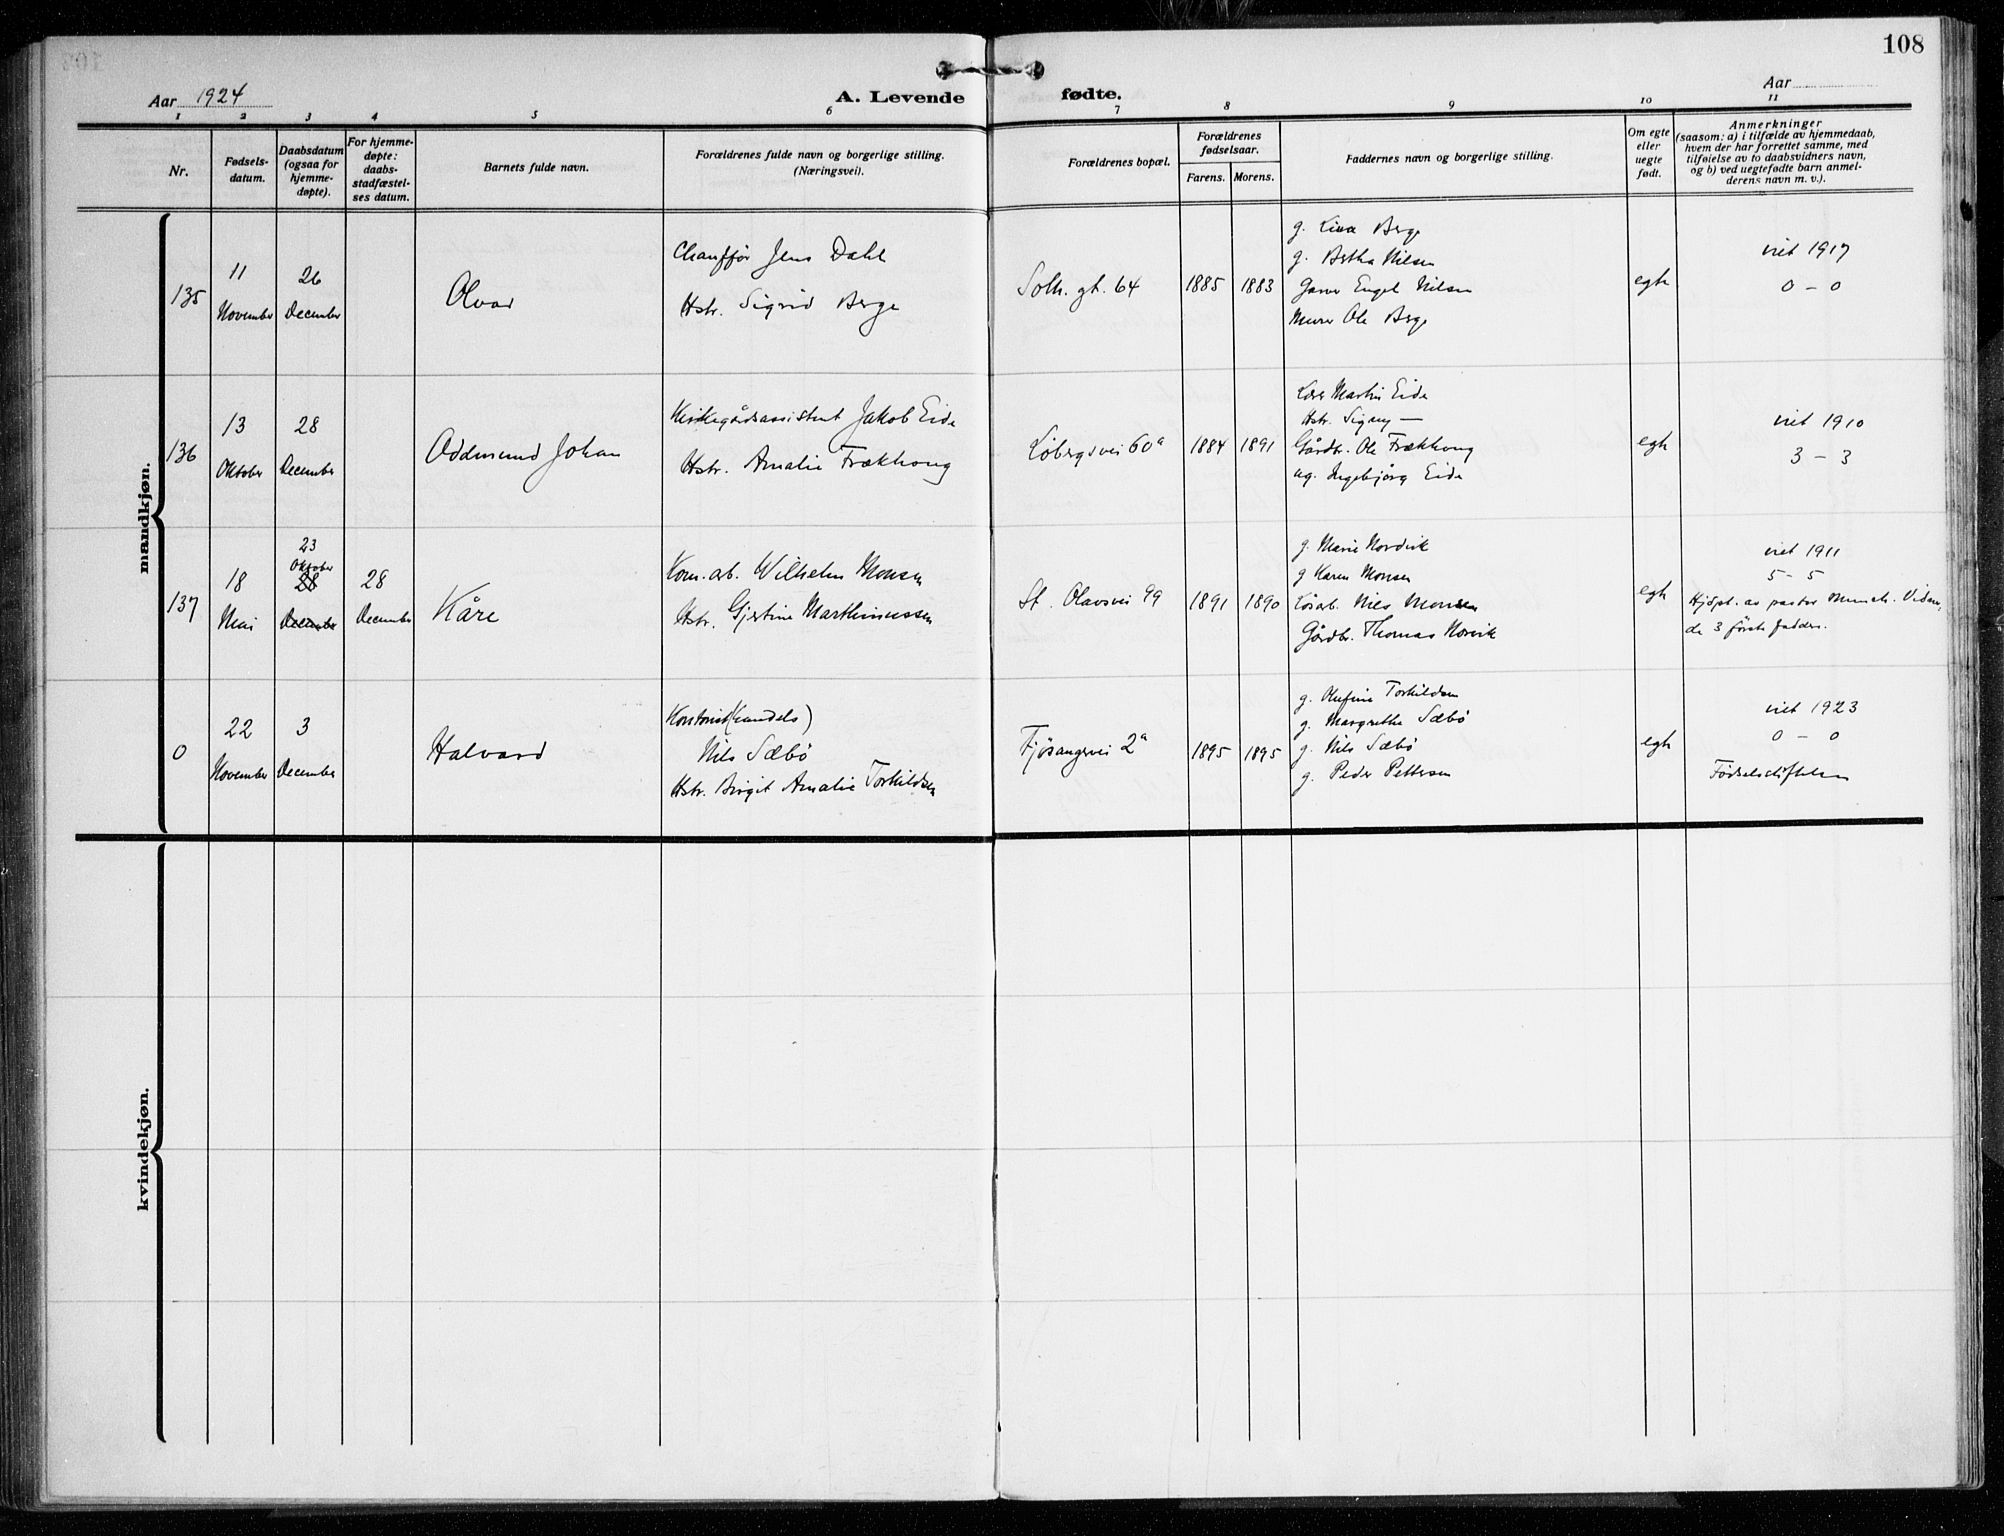 108
Aar 1924
A. Levende fødte.
Aar
1 2 3 4 5 6 7 8 9 10 11
Nr.
Fødsels-
datum.
Daabsdatum
(ogsaa for
hjemme-
døpte).
For hjemme-
døpte:
daabs-
stadfæstel-
ses datum.
Barnets fulde navn.
Forældrenes fulde navn og borgerlige stilling.
(Næringsvei).
Forældrenes bopæl.
Forældrenes
fødselsaar.
Farens. Morens.
Faddernes navn og borgerlige stilling.
Om egte
eller
uegte
født.
Anmerkninger
(saasom: a) i tilfælde av hjemmedaab,
hvem der har forrettet samme, med
tilføielse av to daabsvidners navn,
og b) ved uegtefødte barn anmel-
derens navn m. v.).
mandkjøn.
135
11
November
26
December
Olvar
Chauffør Jens Dahl
Hstr. Sigrid Berge
Solh. gt. 64
1885
1883
g. Lina Berge
g. Bertha Nilsen
Garver Engel Nilsen
Murer Ole Berge
egte
viet 1917
0 - 0
136
13
Oktober
28
December
Oddmund Johan
Kirkegårdsassistent Jakob Eide
Hstr. Amalie Frækhaug
Løbergsvei 60a
1884
1891
Lærer Martin Eide
Hstr. Signy —
Gårdbr. Ole Frækhaug
ug. Ingebjørg Eide
egte
viet 1910
3 - 3
137
18
Mai
23
Oktober
28
December
28
December
Kåre
Kom. arb. Wilhelm Monsen
Hstr. Gjertine Marthinussen
St. Olavsvei 99
1891
1890
g. Marie Nordvik
g Karen Monsen
Løsarb. Nils Monsen
Gårdbr. Thomas Norvik
egte
viet 1911
5 - 5
Hjdøpt. av pastor Munch. Vidner,
de 3 første faddere.
0
22
November
3
December
Halvard
Kontorist (handels)
Nils Sæbø
Hstr. Birgit Amalie Torkildsen
Fjøsangervei 2a
1895
1895
g. Olufine Torkildsen
g. Margrethe Sæbø
g. Nils Sæbø
g. Peder Pettersen
egte
viet 1923
0 - 0
Fødselsstiftelsen
kvindekjøn.